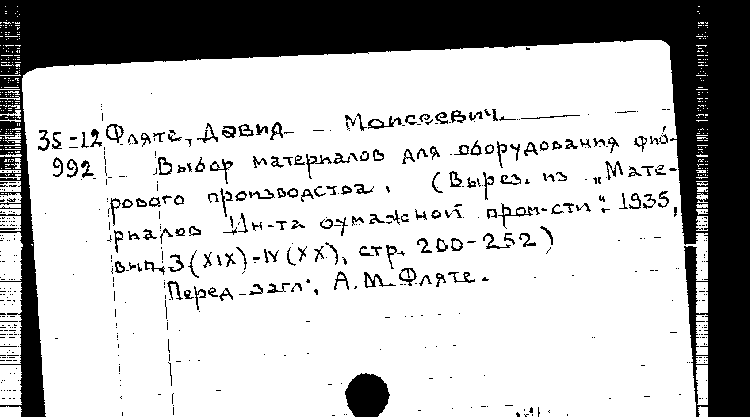 35-12 Фляте, Давид Моисеевич.
992 Выбор материалов для оборудования фиб-
рового производства. (Вырез. из „Мате-
риалов Ин-та бумажной пром-сти": 1935,
вып. 3(XIX)-IV(XX), стр. 200-252)
Перед загл.: А.М. Фляте.